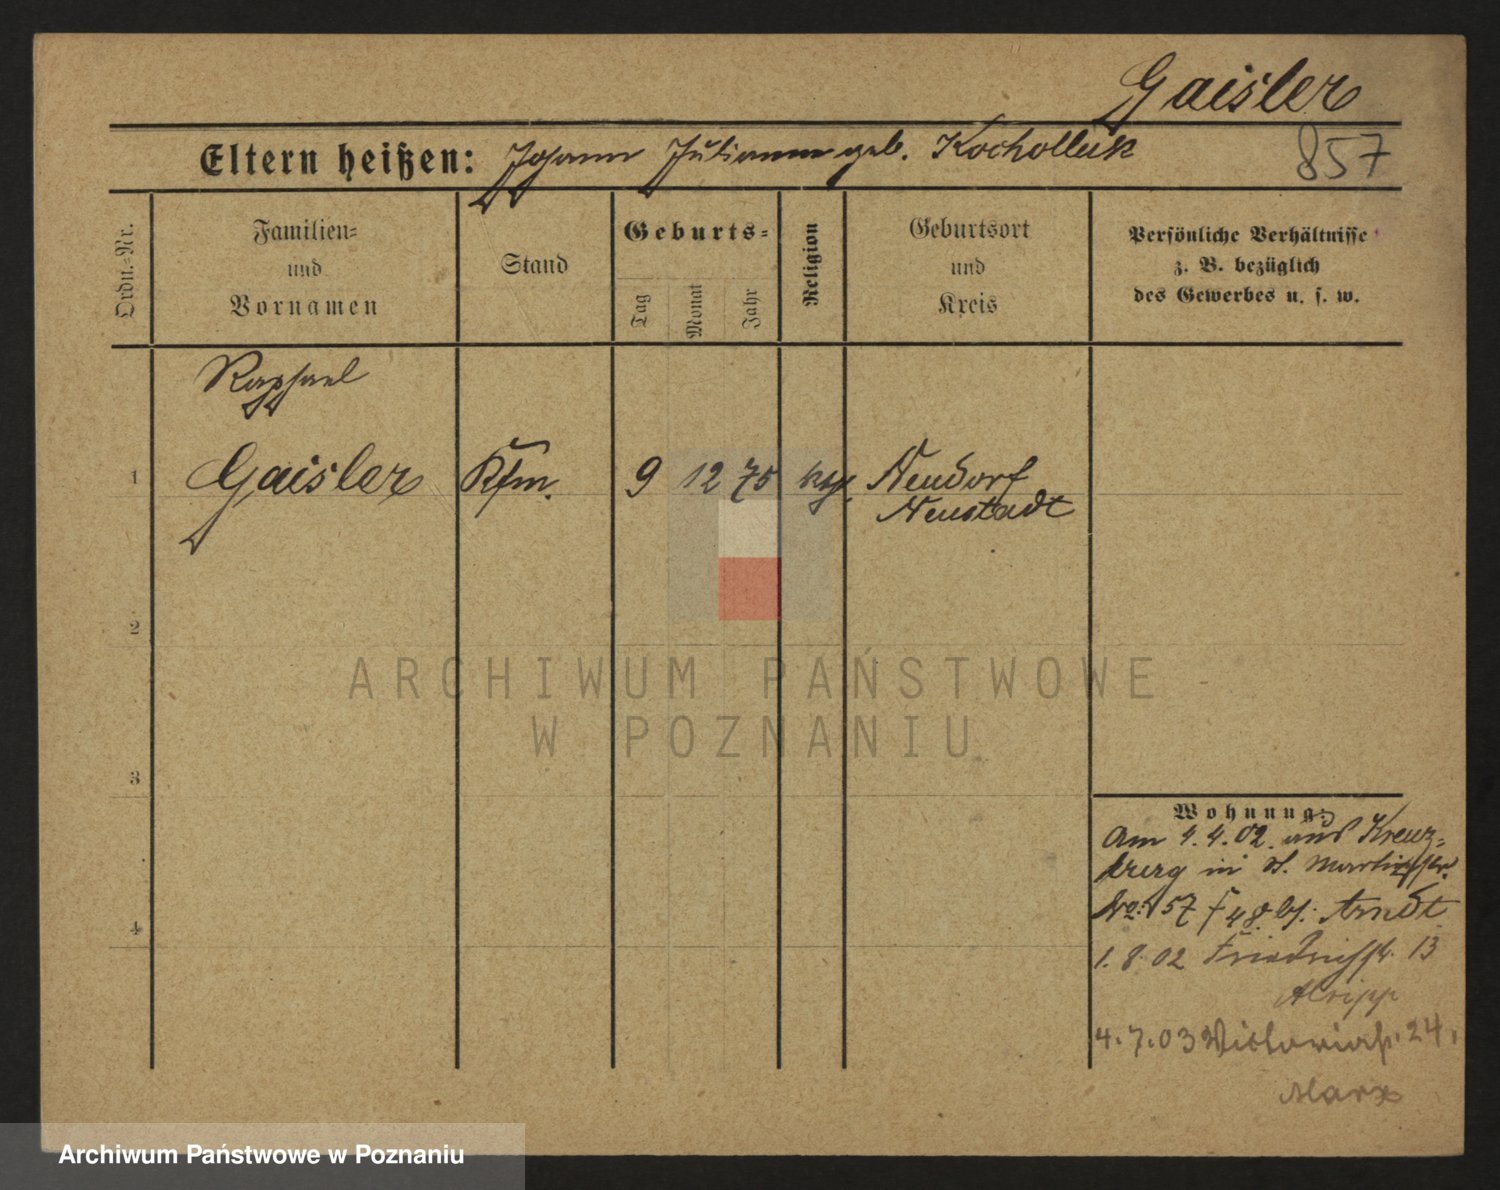 Gaisler
Eltern heißen: Johann Julianna geb. Kochollek
857
Ordn.-Nr.
Familien-
und
Vornamen
Stand
Geburts-
Tag
Monat
Jahr
Religion
Geburtsort
und
Kreis
Persönliche Verhältnisse
z. B. bezüglich
des Gewerbes u. s. w.
Raphael
1 Gaisler Kfm. 9 12 75 Neudorf
Neustadt
2
3
4
Wohnung
Am 4.4.02. aus Kreuz-
berg in St. Martinstr.
No: 57 bei: Arndt
1. 8. 02 Friedrichstr. 13
4. 7. 03 Victoriastr. 24.
Marx
ARCHIWUM PAŃSTWOWE
W POZNANIU
Archiwum Państwowe w Poznaniu